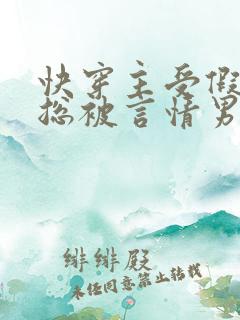 快穿主受假
总被言情男
绯绯殿
未经同意禁止转载